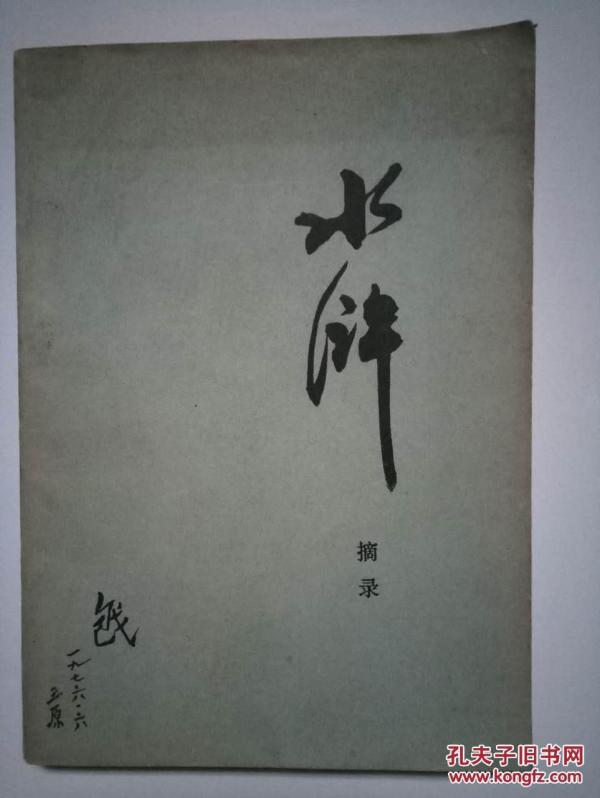 水浒
摘录
一九七六·六
三原
孔夫子旧书网
www.kongfz.com